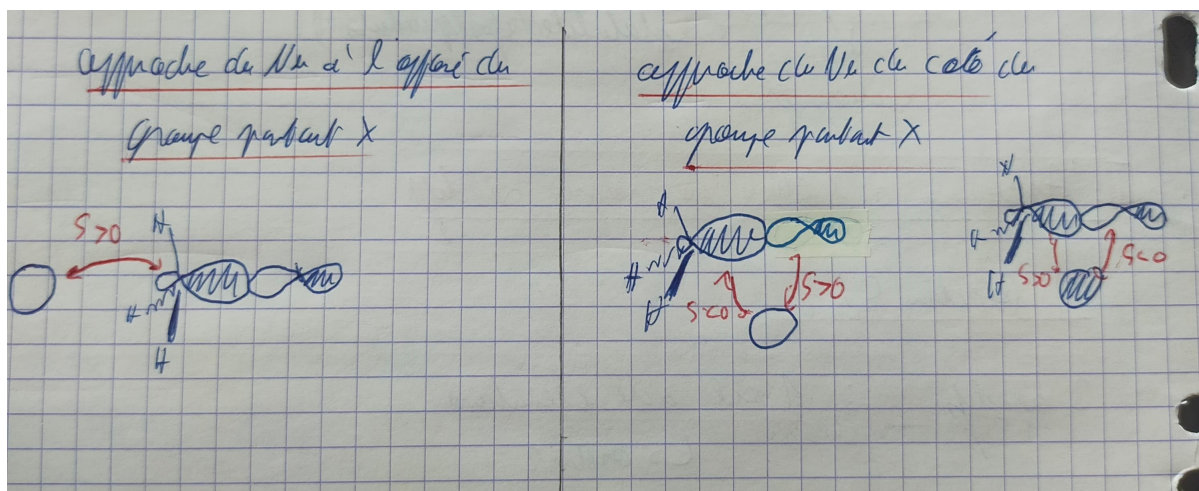 approche du Nu à l'opposé du
groupe partant X
S>0
H
H
H
approche du Nu du coté du
groupe partant X
H
H
H
S<0
S>0
H
H
H
S>0
S<0